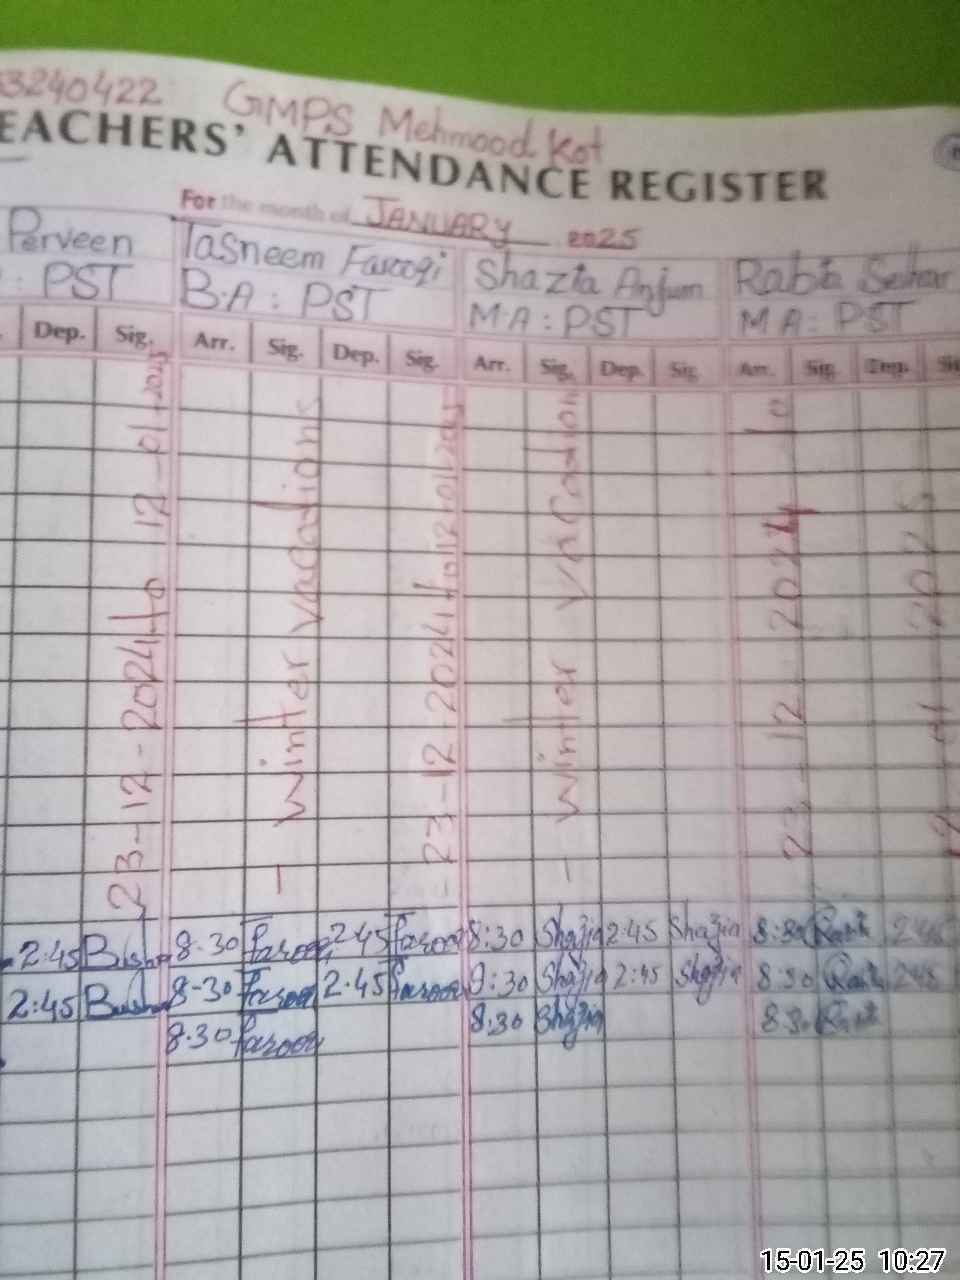 3240422 GMPS Mehmood Kot
EACHERS' ATTENDANCE REGISTER
For the month of JANUARY 2025
Perveen Tasneem Farooqi Shazia Anjum Rabia Sehar
: PST B.A : PST M.A : PST M A : PST
Dep. Sig. Arr. Sig. Dep. Sig. Arr. Sig. Dep. Sig. Arr. Sig. Dep.
23-12-2024 to 12-01-2025
- Winter Vacations
23-12-2024 to 12-01-2025
- Winter Vacation
23 12 2024 to
2025
2:45 8.30 2:45 8:30 Shazia 2:45 Shazia 8:30 2:45
2:45 8-30 2.45 8:30 Shazia 2:45 Shazia 8:30 2:45
8.30 8:30 Shazia 8:30
15-01-25 10:27